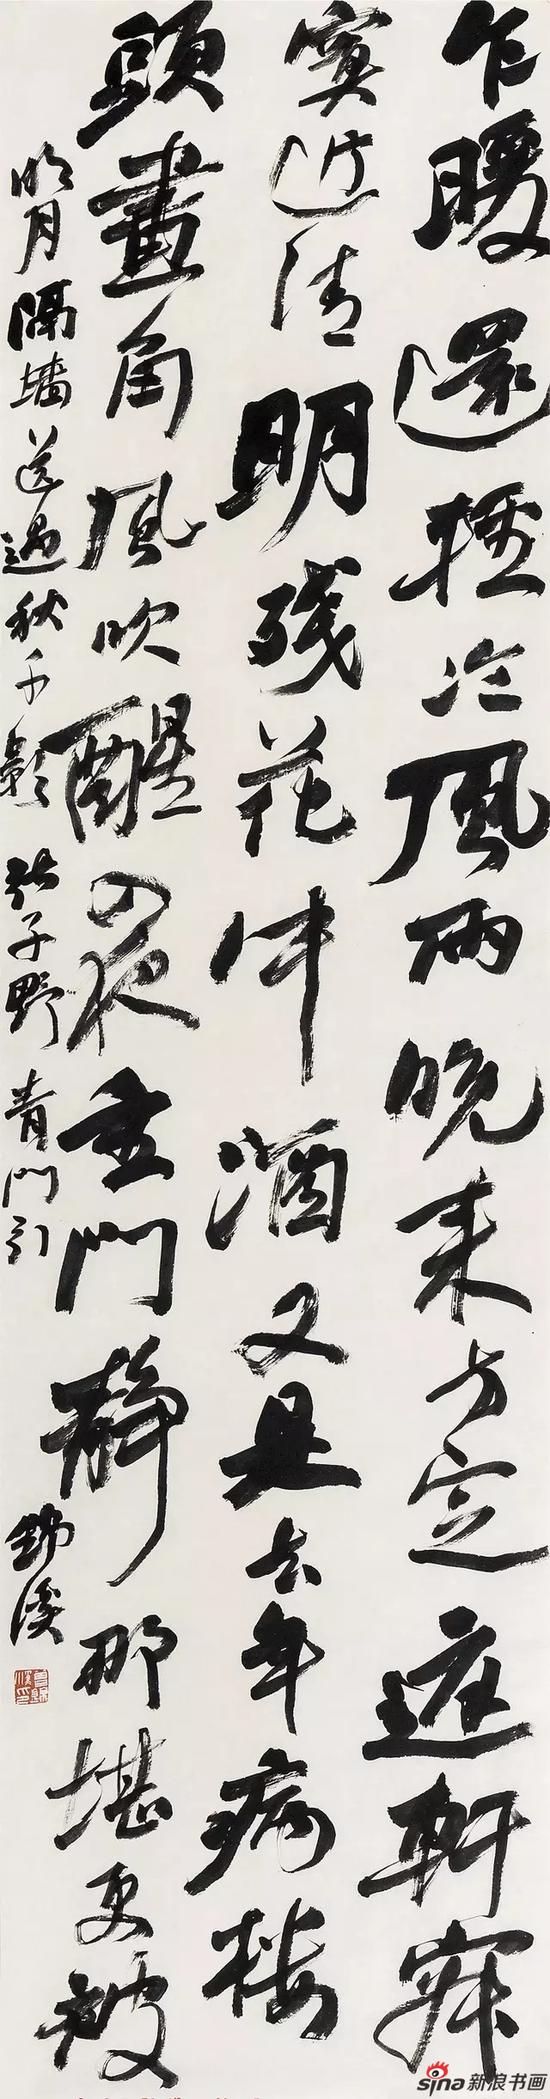 乍暖還軽冷風雨晚来方定庭軒寂
寞近清明残花中酒又是去年病楼
頭畫角風吹醒入夜重門靜那堪更被
明月隔墙送過秋千影 張子野青門引 錦溪
sina新浪书画